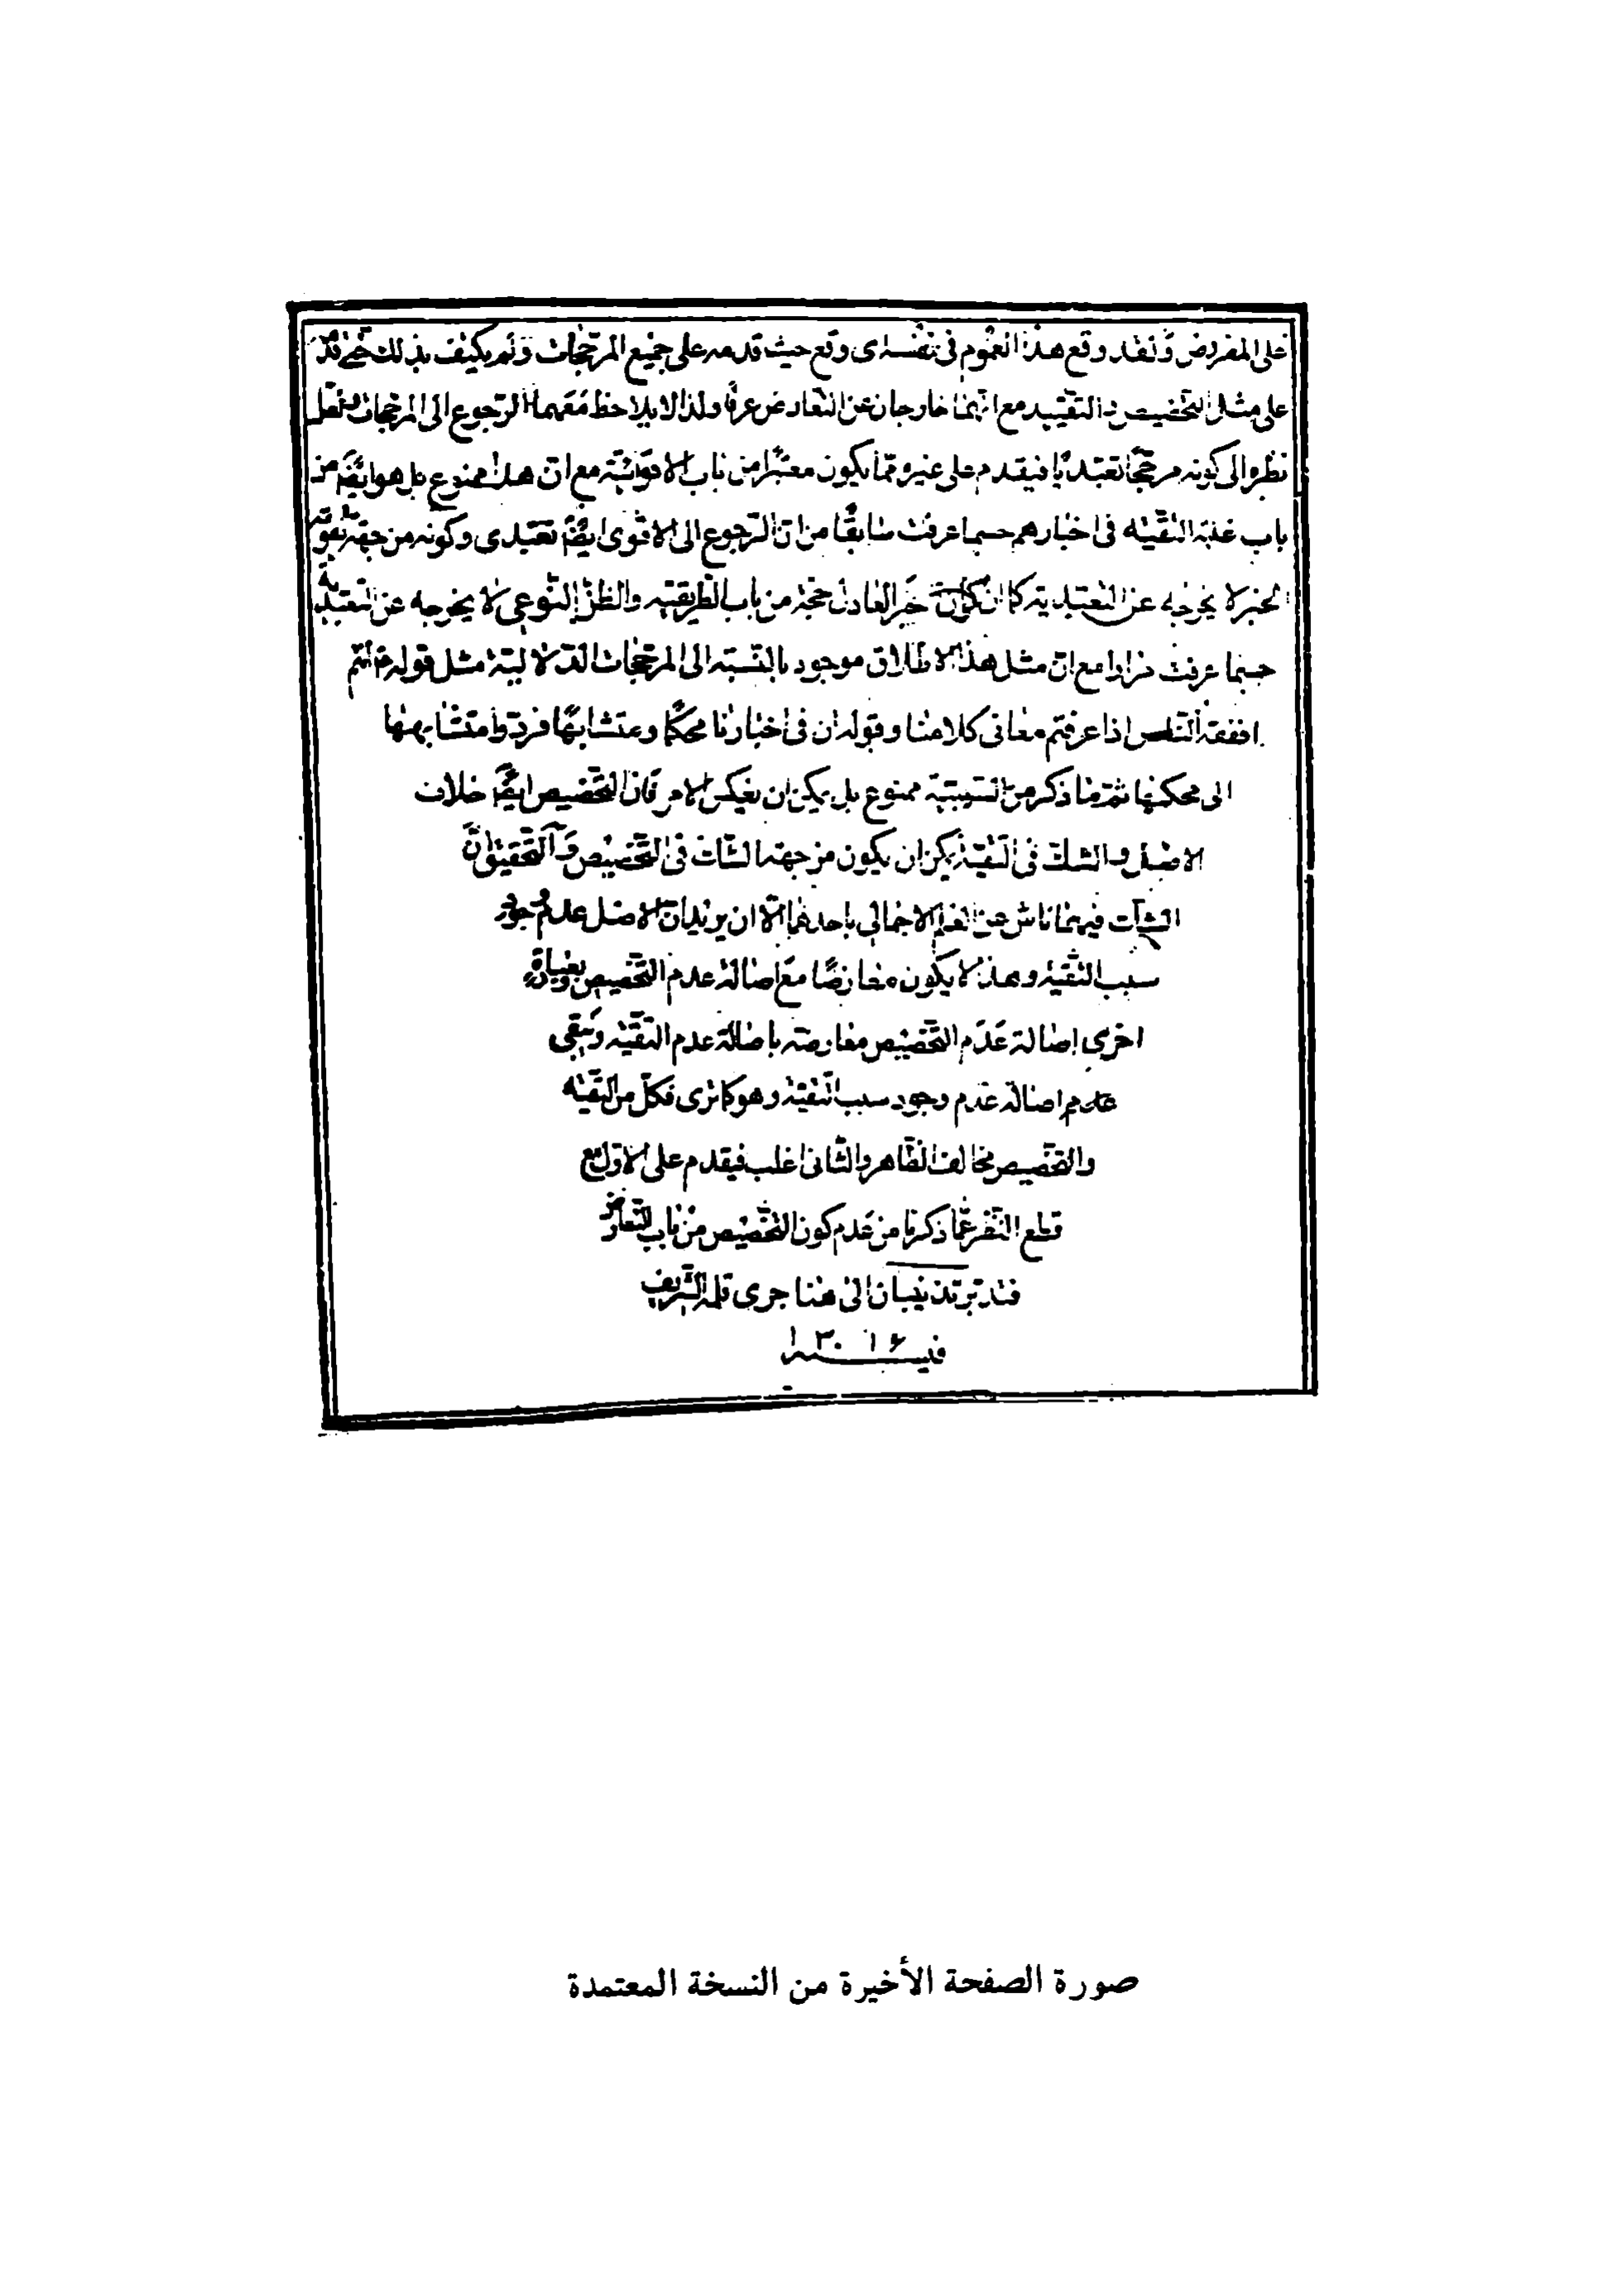 على المفروض ولقد وقع هذا العموم في نفسه اى وقع حيث قدمه على جميع المرجّحات ولم يكتف بذلك حتى قدّمه
على مثل التخصيص والتقييد مع انهما خارجان عن التعارض عرفا ولذا لا يلاحظ معهما الرجوع الى المرجحات ولعل
نظره الى كونه مرجّحا تعبديا فيقدم على غيره ممّا يكون معتبرا من باب الاقوائيّة مع ان هذا ممنوع بل هو ايضا من
باب غلبة التقيّة فى اخبارهم حسبما عرفت سابقا من ان الرّجوع الى الاقوى ايضا تعبّدى وكونه من جهة تقوية
الخبر لا يخرجه عن التعبديّة كما ان كون خبر العادل حجّة من باب الطريقيّة والظنّ النّوعي لا يخرجه عن التعبديّة
حسبما عرفت مرارا مع انّ مثل هذا الاطلاق موجود بالنّسبة الى المرجّحات الدّلاليّة مثل قوله ع انتم
افقه النّاس اذا عرفتم معانى كلامنا وقوله ان فى اخبارنا محكما ومتشابها فردّوا متشابهها
الى محكمها ثمّ ما ذكر من السّببيّة ممنوع بل يمكن ان يعكس الامر فان التّخصيص ايضا خلاف
الاصل والشك فى التقيّة يمكن ان يكون من جهة الشّك فى التّخصيص والتّحقيق انّ
الشّك فيهما ناش عن العلم الاجمالي باحدهما الّا ان يريد ان الاصل عدم وجود
سبب التقيّة وهذا لا يكون معارضا مع اصالة عدم التّخصيص وبعبارة
اخرى اصالة عدم التّخصيص معارضة باصالة عدم التقيّة ويبقى
عدم اصالة عدم وجود سبب التّقيّة وهو كما ترى فكلّ من التّقيّة
والتخصيص مخالف الظّاهر والثّانى اغلب فيقدم على الاوّل مع
قطع النّظر عمّا ذكرنا من عدم كون التّخصيص من باب التّعارض
فتدبّر تذنيبان الى هنا جرى قلمه الشّريف
فى سنه ١٣٠١٦
صورة الصفحة الأخيرة من النسخة المعتمدة